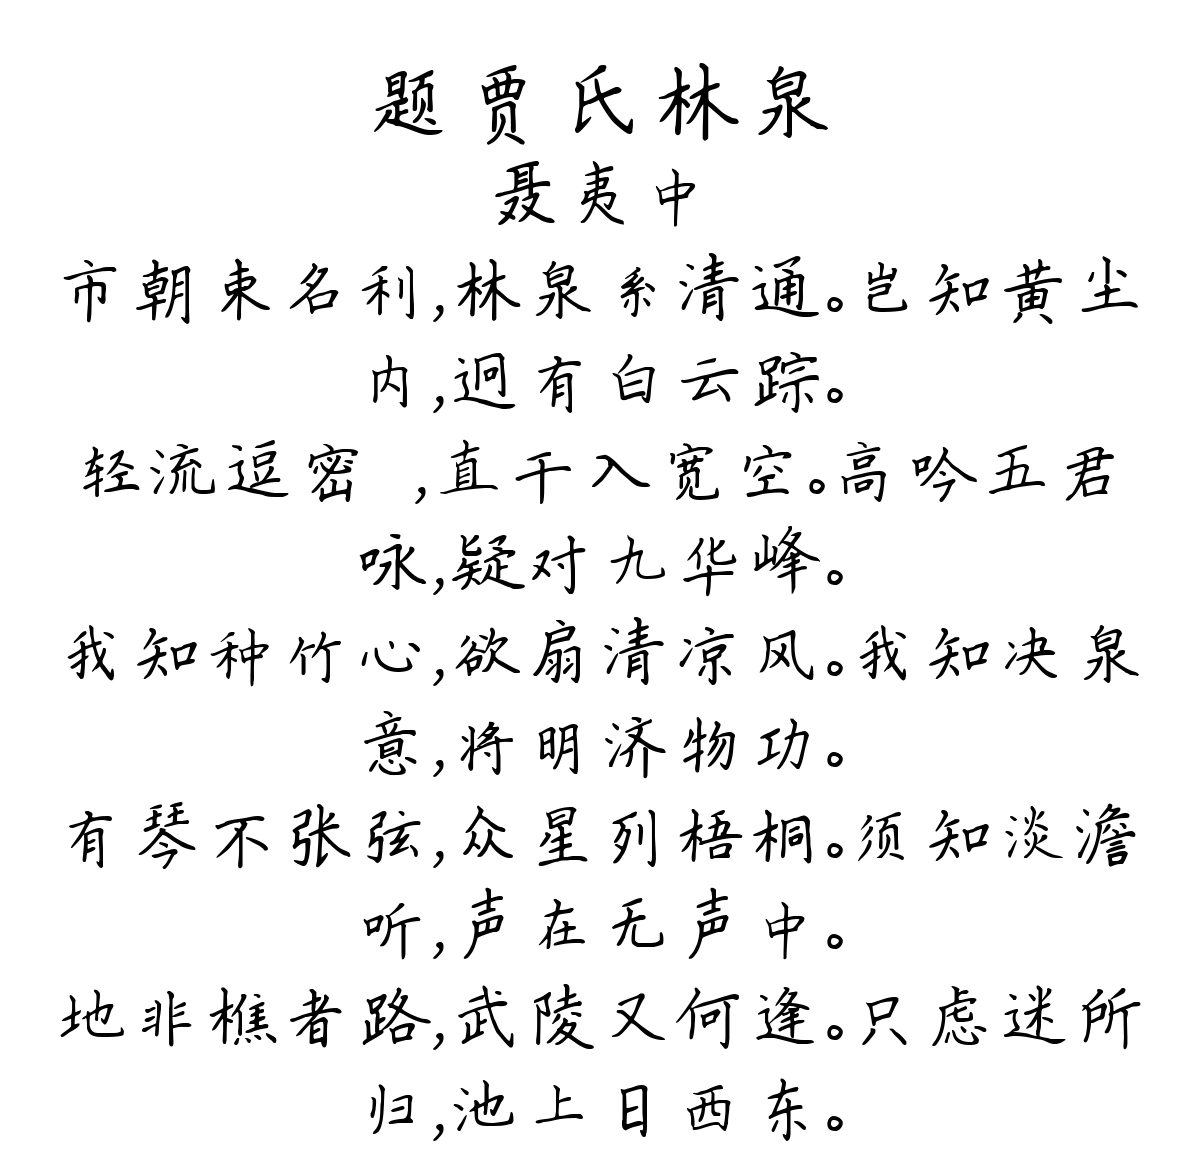 题贾氏林泉
聂夷中
市朝束名利,林泉系清通。岂知黄尘
内,迥有白云踪。
轻流逗密 ,直干入宽空。高吟五君
咏,疑对九华峰。
我知种竹心,欲扇清凉风。我知决泉
意,将明济物功。
有琴不张弦,众星列梧桐。须知淡澹
听,声在无声中。
地非樵者路,武陵又何逢。只虑迷所
归,池上日西东。